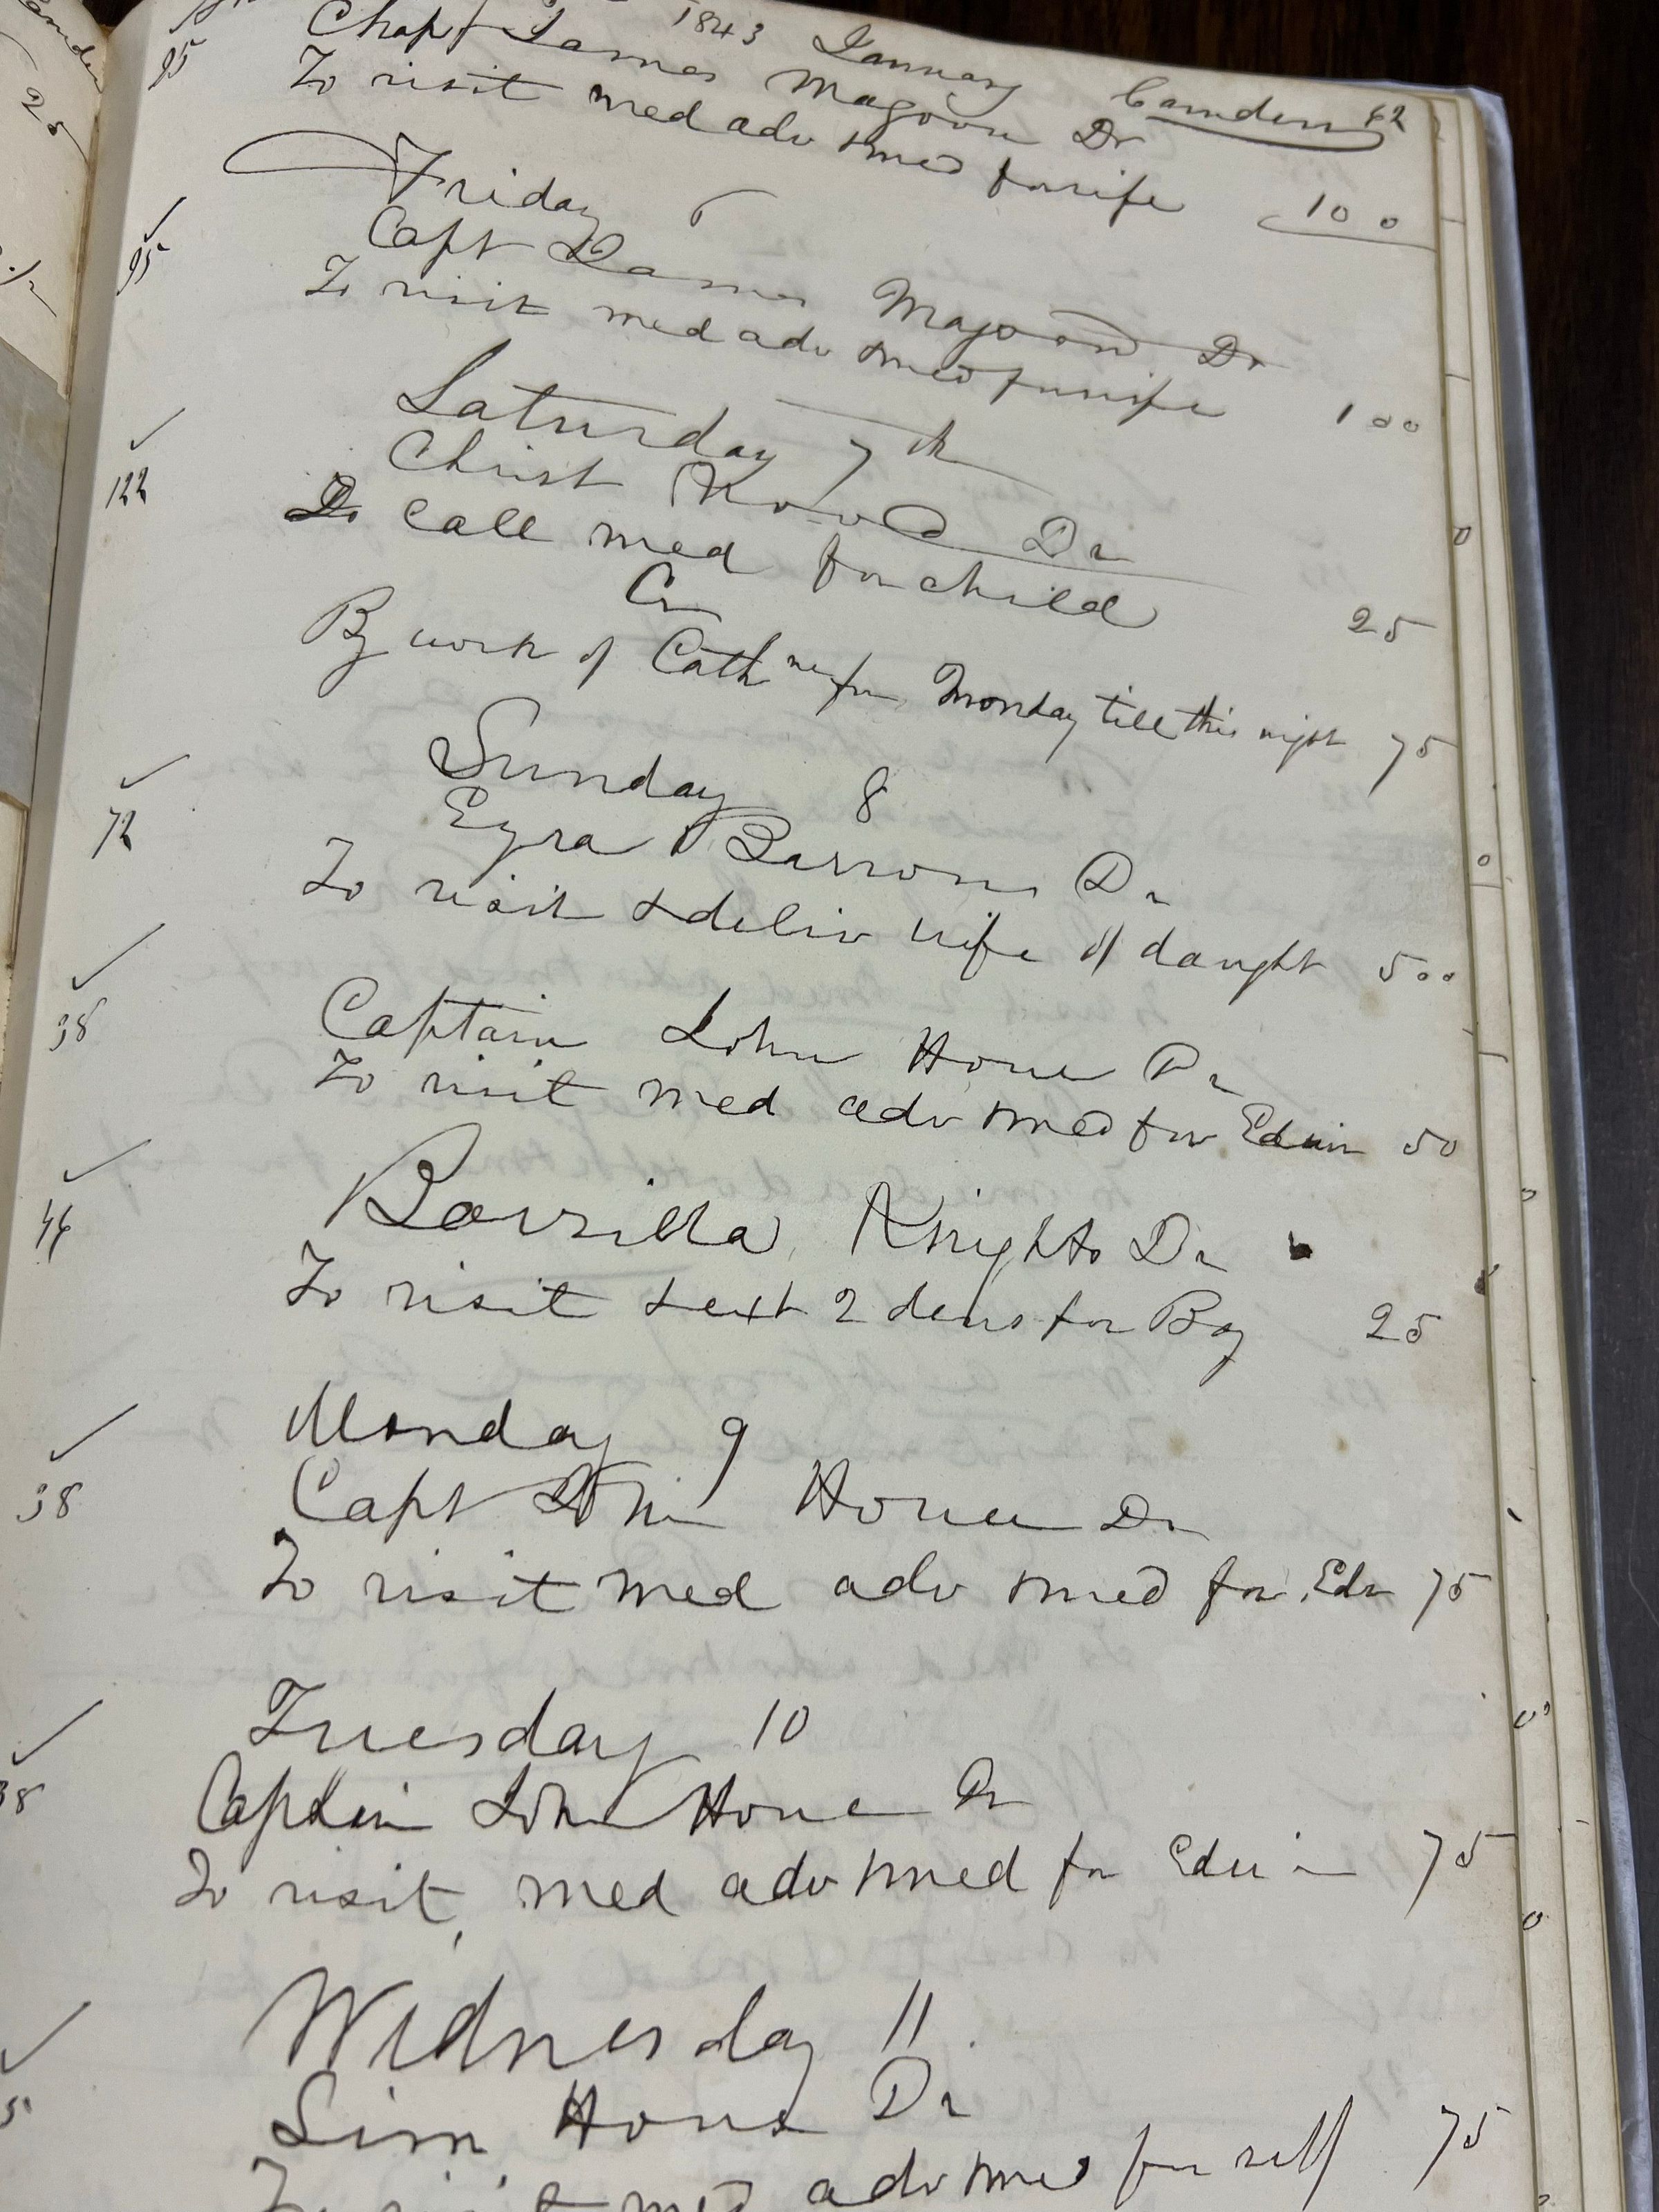 1843 January Camden 62
95 Capt James Magoon Dr
To visit med adv & med for wife 100
Friday 6
95 Capt James Magoon Dr
To visit med adv & med for wife 100
Saturday 7th
122 Christ Wood Dr
To call med for child 25
Cr
By work of Cath from Monday till this night 75
Sunday 8
72 Ezra Barrows Dr
To visit & deliv wife of daught 500
38 Captain John Hone Dr
To visit med adv & med for Edwin 50
44 Barzilla Knights Dr
To visit & ext 2 dens for Boy 25
Monday 9
38 Capt John Hone Dr
To visit med adv & med for Edw 75
Tuesday 10
38 Captain John Hone Dr
To visit med adv & med for Edwin 75
Wednesday 11
Sim Hone Dr
To visit med adv & med for self 75